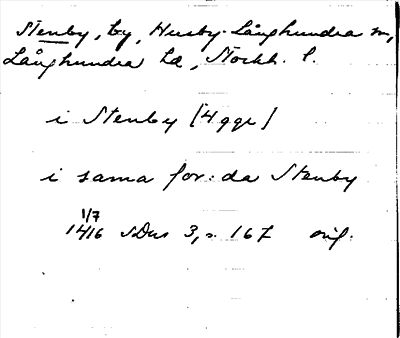 Stenby, by, Husby-Långhundra sn,
Långhundra hd, Stockh. l.
i Stenby [4 ggr]
i sama for: da Stenby
1/7
1416 SDns 3, s. 167 orig.